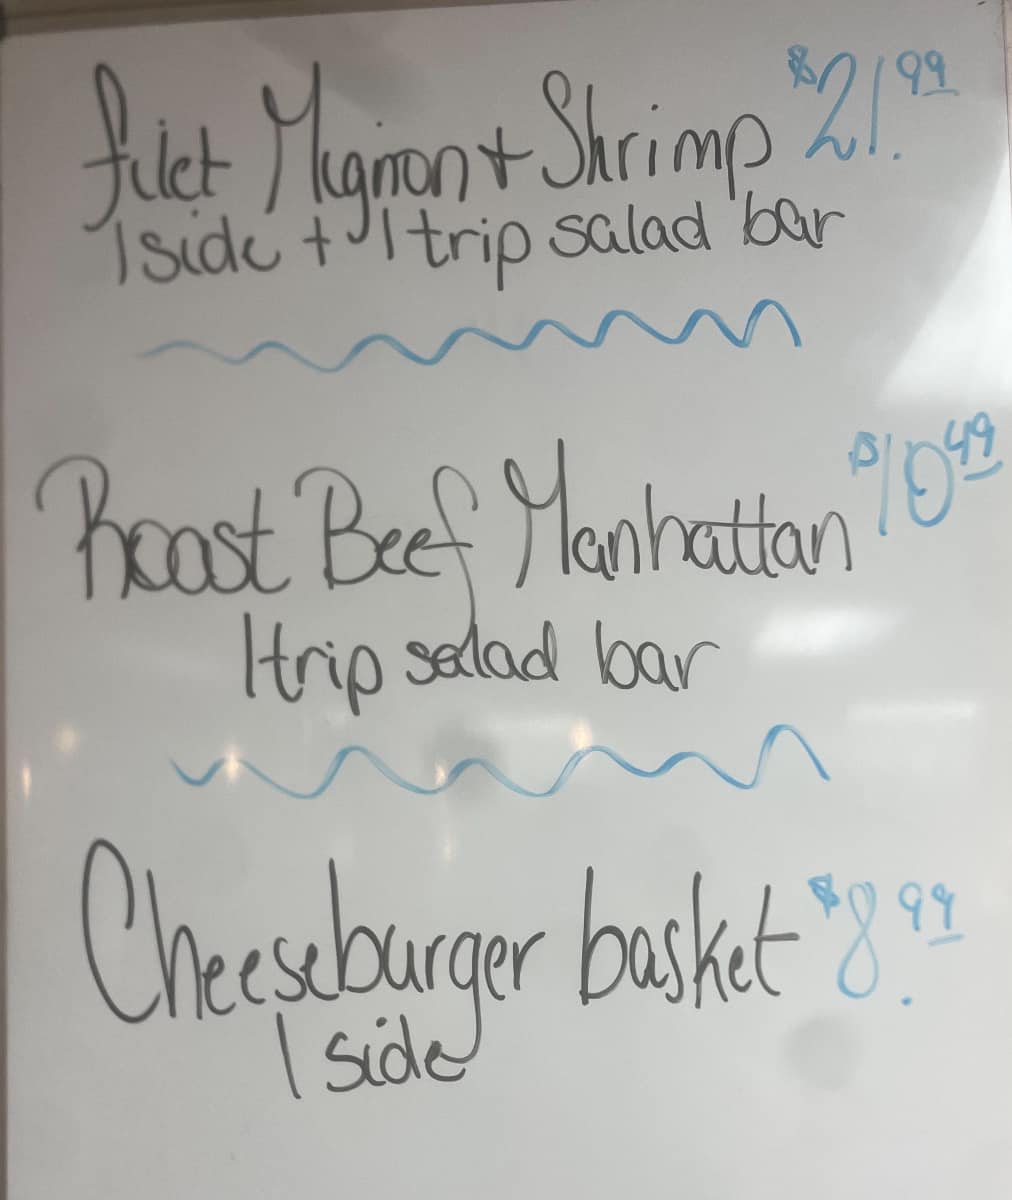 filet Mignon + Shrimp $21.99
1 side + 1 trip salad bar
Roast Beef Manhattan $10.49
1 trip salad bar
Cheeseburger basket $8.99
1 side